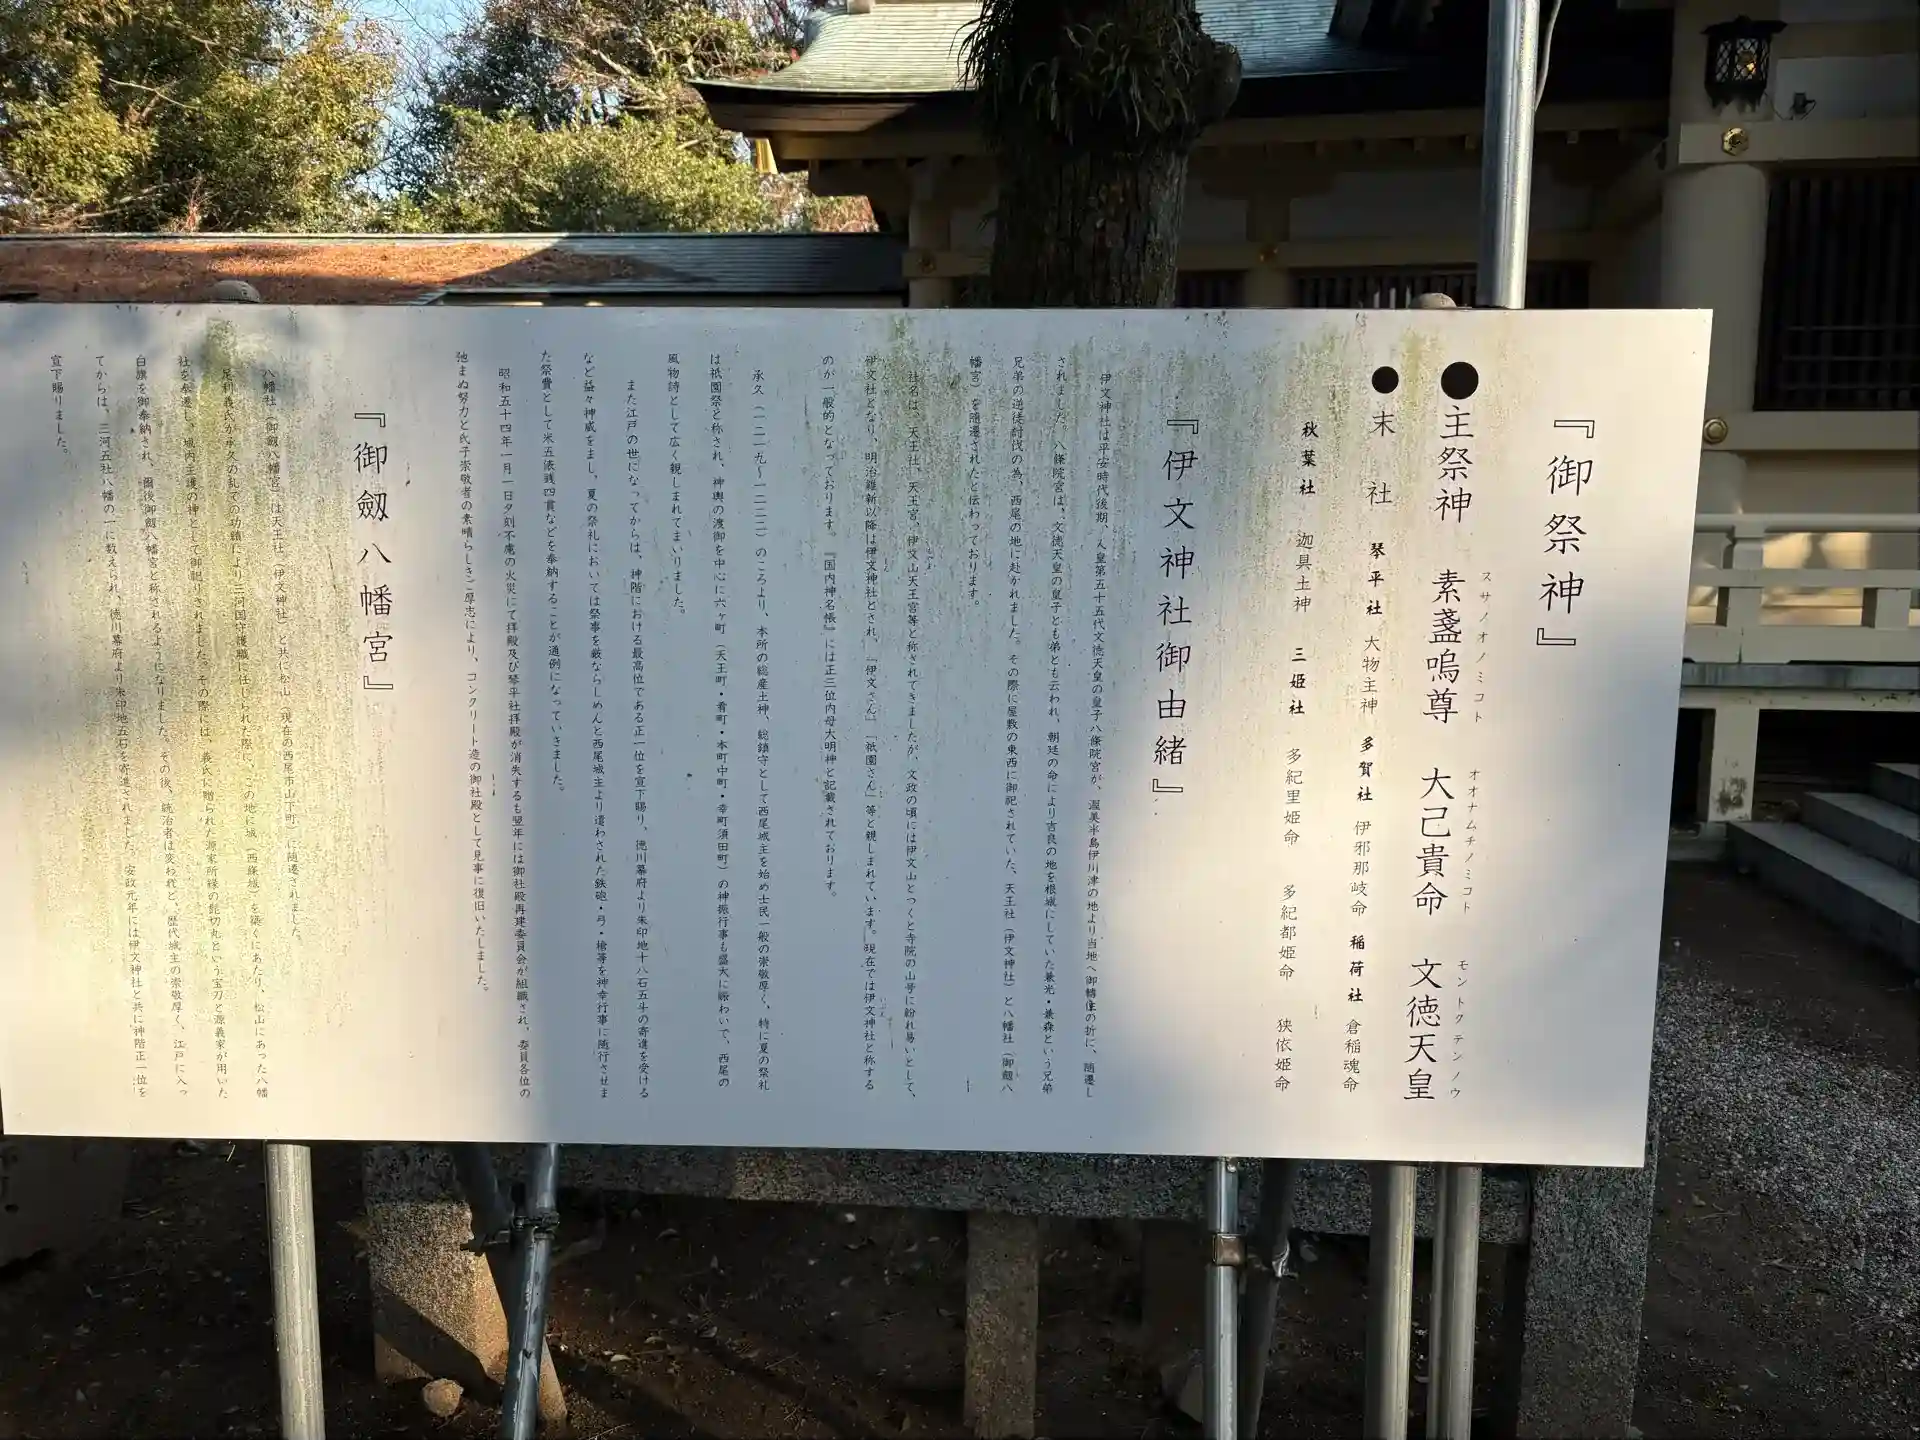 『御祭神』
●主祭神 素盞嗚尊 大己貴命 文徳天皇
スサノオノミコト オオナムチノミコト モントクテンノウ
●末社 琴平社 大物主神 多賀社 伊邪那岐命 稲荷社 倉稲魂命
秋葉社 迦具土神 三姫社 多紀里姫命 多紀都姫命 狭依姫命
『伊文神社御由緒』
伊文神社は平安時代後期、人皇第五十五代文徳天皇の皇子八條院宮が、渥美半島伊川津の地より当地へ御轉住の折に、随遷し
されました。八條院宮は、文徳天皇の皇子とも弟とも云われ、朝廷の命により吉良の地を根城にしていた兼光・兼森という兄弟
兄弟の逆徒討伐の為、西尾の地に赴かれました。その際に屋敷の東西に御祀されていた、天王社（伊文神社）と八幡社（御劔八
幡宮）を随遷されたと伝わっております。
社名は、天王社、天王宮、伊文山天王宮等と称されてきましたが、文政の頃には伊文山とつくと寺院の山号に紛れ易いとして、
伊文社となり、明治維新以降は伊文神社とされ、「伊文さん」「祇園さん」等と親しまれています。現在では伊文神社と称する
のが一般的となっております。『国内神名帳』には正三位内母大明神と記載されております。
承久（一二一九～一二二二）のころより、本所の総産土神、総鎮守として西尾城主を始め士民一般の崇敬厚く、特に夏の祭礼
は祇園祭と称され、神輿の渡御を中心に六ヶ町（天王町・肴町・本町中町・幸町須田町）の神振行事も盛大に賑わいで、西尾の
風物詩として広く親しまれてまいりました。
また江戸の世になってからは、神階における最高位である正一位を宣下賜り、徳川幕府より朱印地十八石五斗の寄進を受ける
など益々神威をまし、夏の祭礼においては祭事を厳ならしめんと西尾城主より遣わされた鉄砲・弓・槍等を神幸行事に随行させま
た祭費として米五俵銭四貫などを奉納することが通例になっていきました。
昭和五十四年一月一日夕刻不慮の火災にて拝殿及び琴平社拝殿が消失するも翌年には御社殿再建委員会が組織され、委員各位の
弛まぬ努力と氏子崇敬者の素晴らしきご厚志により、コンクリート造の御社殿として見事に復旧いたしました。
『御劔八幡宮』
八幡社（御劔八幡宮）は天王社（伊文神社）と共に松山（現在の西尾市山下町）に随遷されました。
足利義氏が承久の乱での功績により三河国守護職に任じられた際に、この地に城（西條城）を築くにあたり、松山にあった八幡
社を奉遷し、城内主護の神として御祀りされました。その際には、義氏に贈られた源家所縁の髭切丸という宝刀と源義家が用いた
白旗を御奉納され、爾後御劔八幡宮と称されるようになりました。その後、統治者は変われど、歴代城主の崇敬厚く、江戸に入っ
てからは、三河五社八幡の一に数えられ、徳川幕府より朱印地五石を寄進されました。安政元年には伊文神社と共に神階正一位を
宣下賜りました。